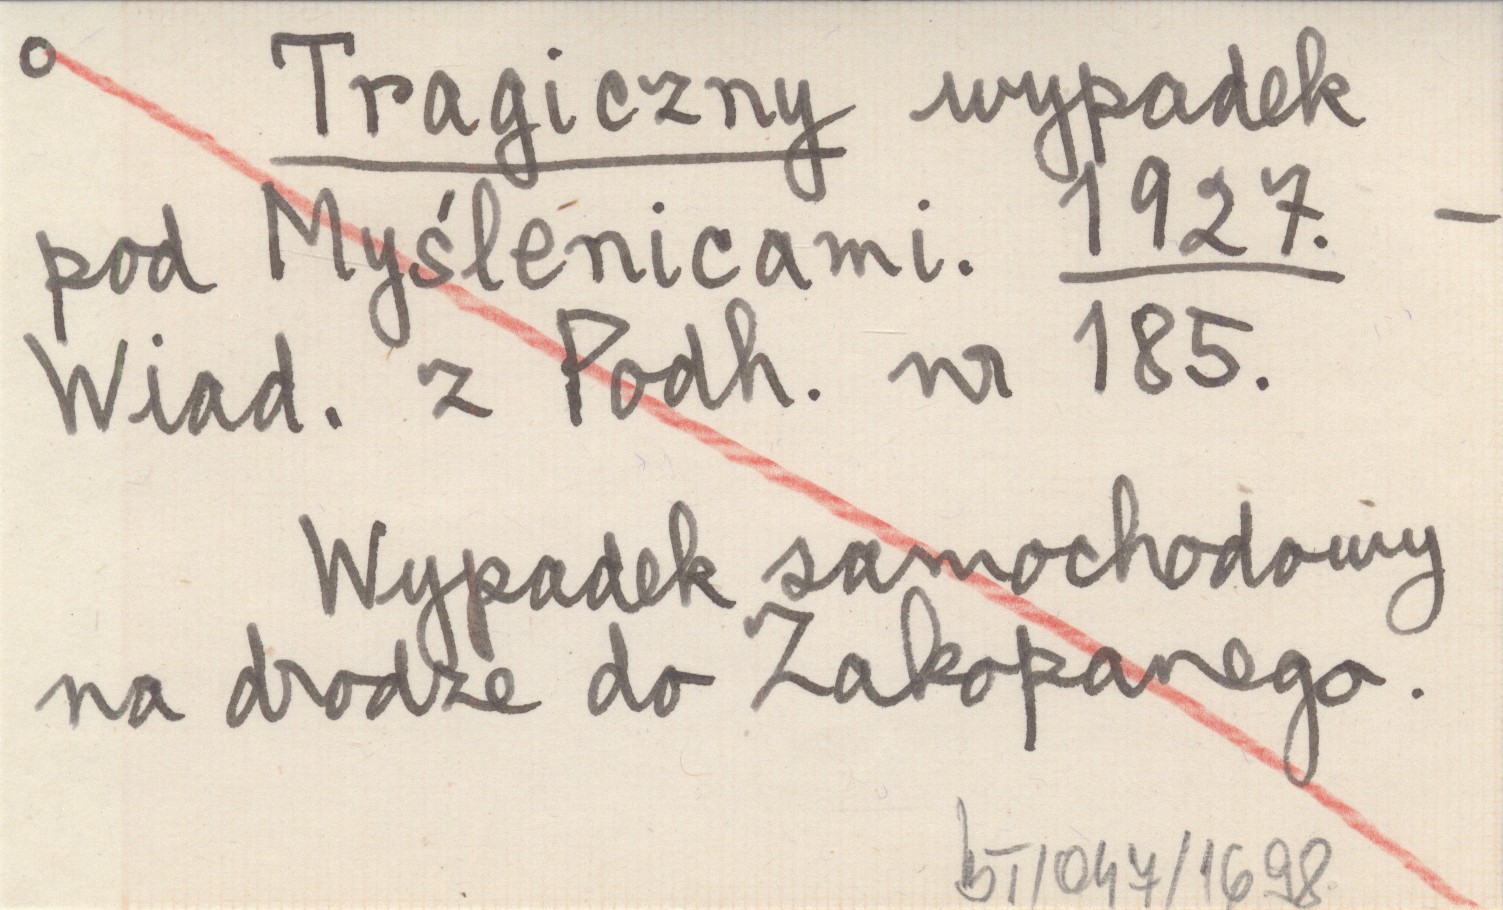 Tragiczny wypadek
pod Myślenicami. 1927. –
Wiad. z Podh. nr 185.
Wypadek samochodowy
na drodze do Zakopanego.
/047/1698